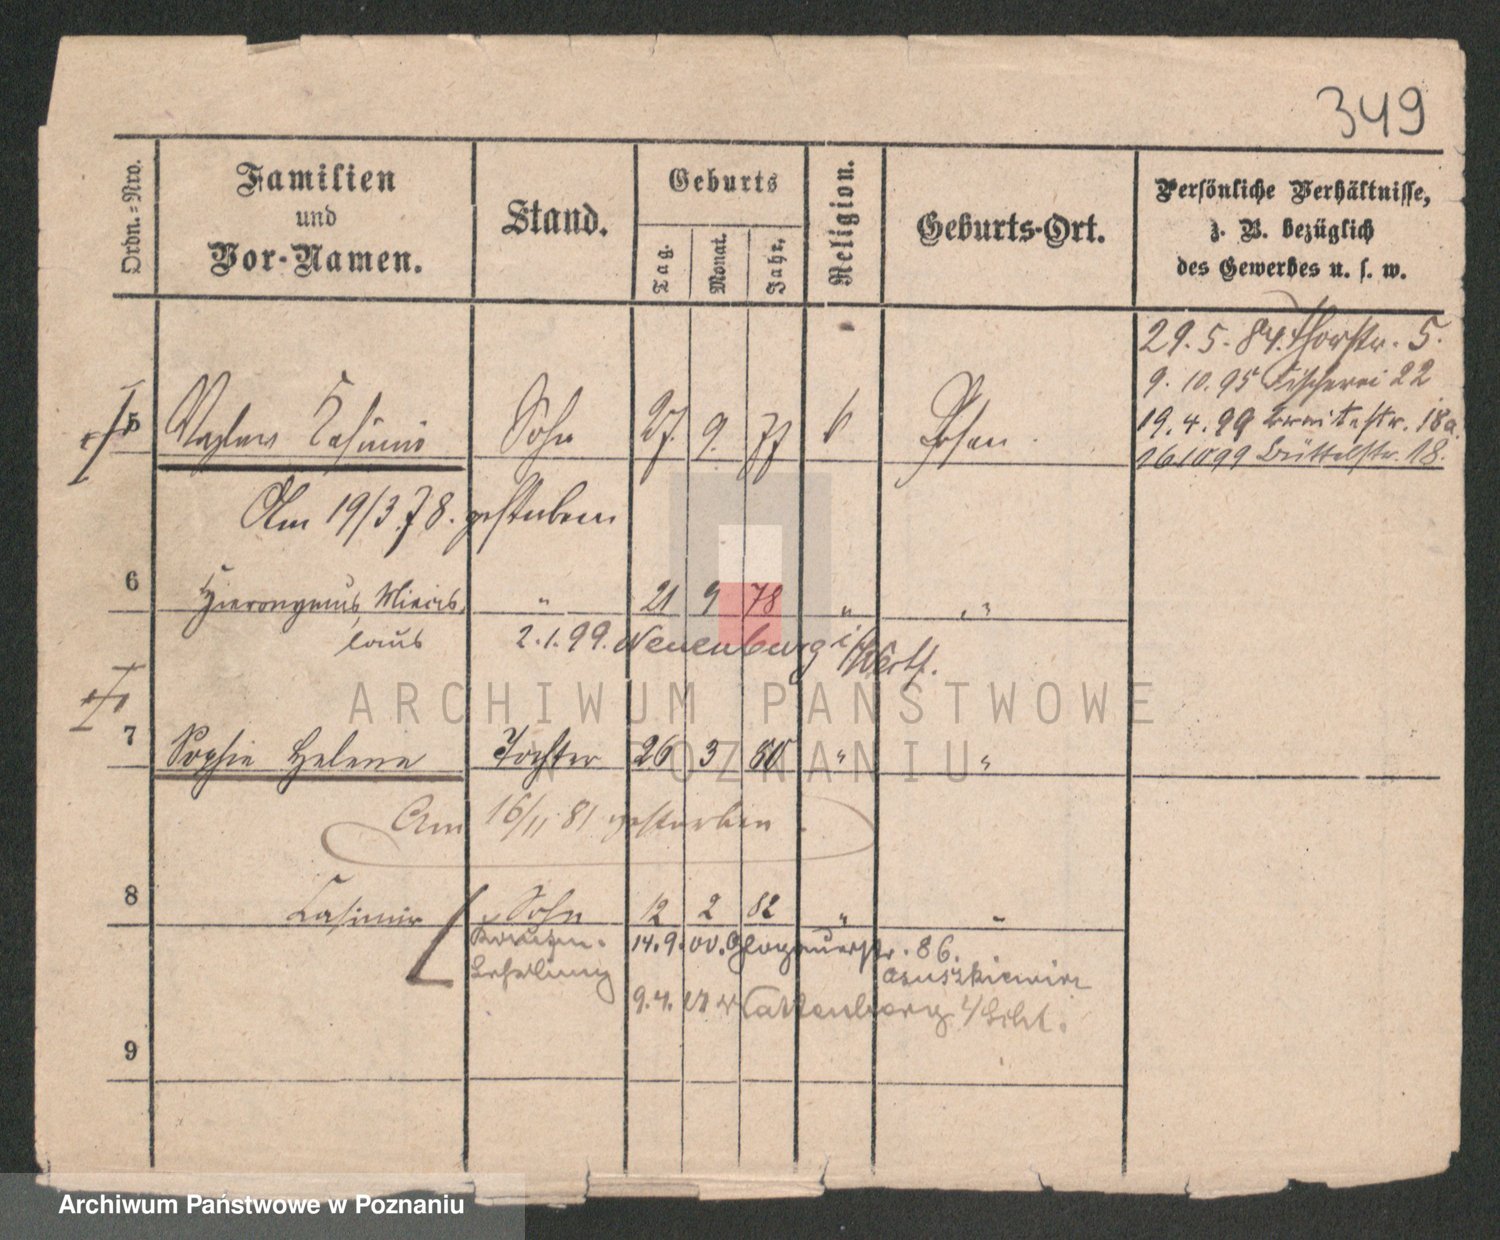 349
Ordn.-Nro.
Familien
und
Vor-Namen.
Stand.
Geburts
Tag.
Monat.
Jahr.
Religion.
Geburts-Ort.
Persönliche Verhältnisse,
z. B. bezüglich
des Gewerbes u. s. w.
29. 5. 84. Thorstr. 5.
9. 10. 95 Fischerei 22
19. 4. 99 Breitestr. 18a.
16 10 99 Büttelstr. 18.
5 Casimir Sohn 27. 9. 77 k Posen.
Am 19/3.78. gestorben
6 Hieronymus, Miecis- " 21 9 78 " "
laus
2. 1. 99. Neuenburg i/Westf.
7 Sophie Helene Tochter 26 3 80 " "
Am 16/11 81 gestorben.
8 Casimir Sohn 12 2 82 " "
14. 9. 00. Glogauerstr. 86.
Lehrling
9. 4.
9
ARCHIWUM PAŃSTWOWE
W POZNANIU
Archiwum Państwowe w Poznaniu